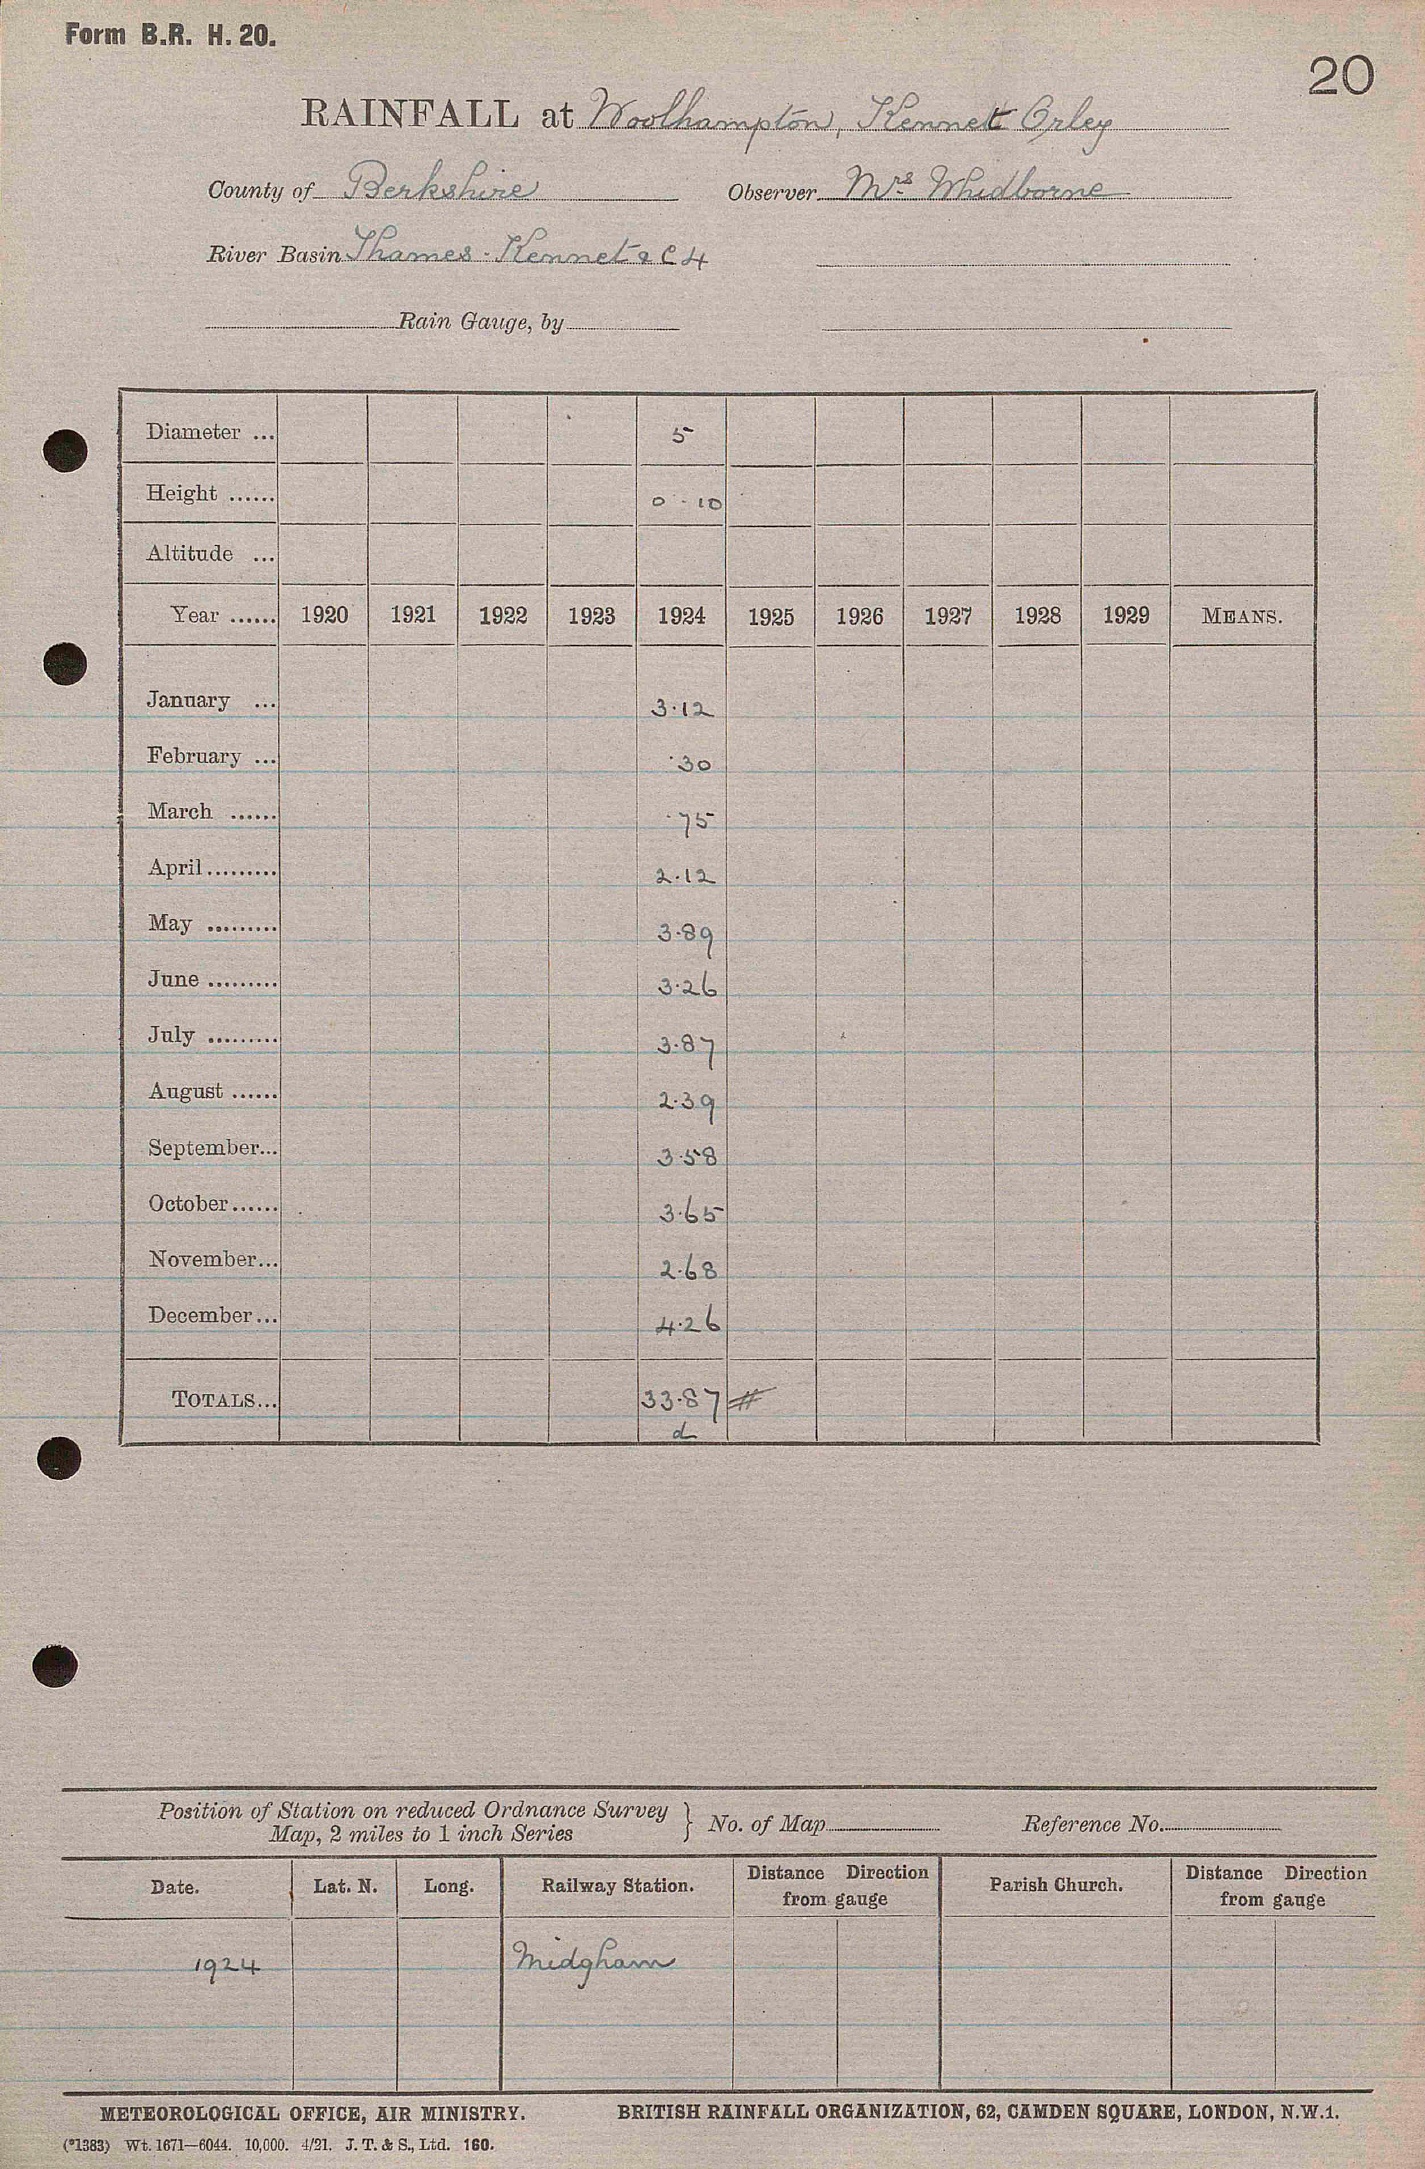 Form B.R. H. 20.
20
RAINFALL at Woolhampton, Kennett Orley
County of Berkshire Observer Mrs Whidborne
River Basin Thames - Kennet & C 4
Rain Gauge, by
Diameter ... 5
Height ...... 0 - 10
Altitude ...
Year ...... 1920 1921 1922 1923 1924 1925 1926 1927 1928 1929 MEANS.
January ... 3.12
February ... .30
March ...... .75
April ......... 2.12
May ......... 3.89
June ......... 3.26
July ......... 3.87
August ...... 2.39
September... 3.58
October ...... 3.65
November... 2.68
December... 4.26
TOTALS... 33.87 #
d
Position of Station on reduced Ordnance Survey
Map, 2 miles to 1 inch Series } No. of Map Reference No.
Date. Lat. N. Long. Railway Station. Distance Direction from gauge Parish Church. Distance Direction from gauge
1924 Midgham
METEOROLOGICAL OFFICE, AIR MINISTRY. BRITISH RAINFALL ORGANIZATION, 62, CAMDEN SQUARE, LONDON, N.W.1.
(*1383) Wt. 1671—6044. 10,000. 4/21. J. T. & S., Ltd. 160.